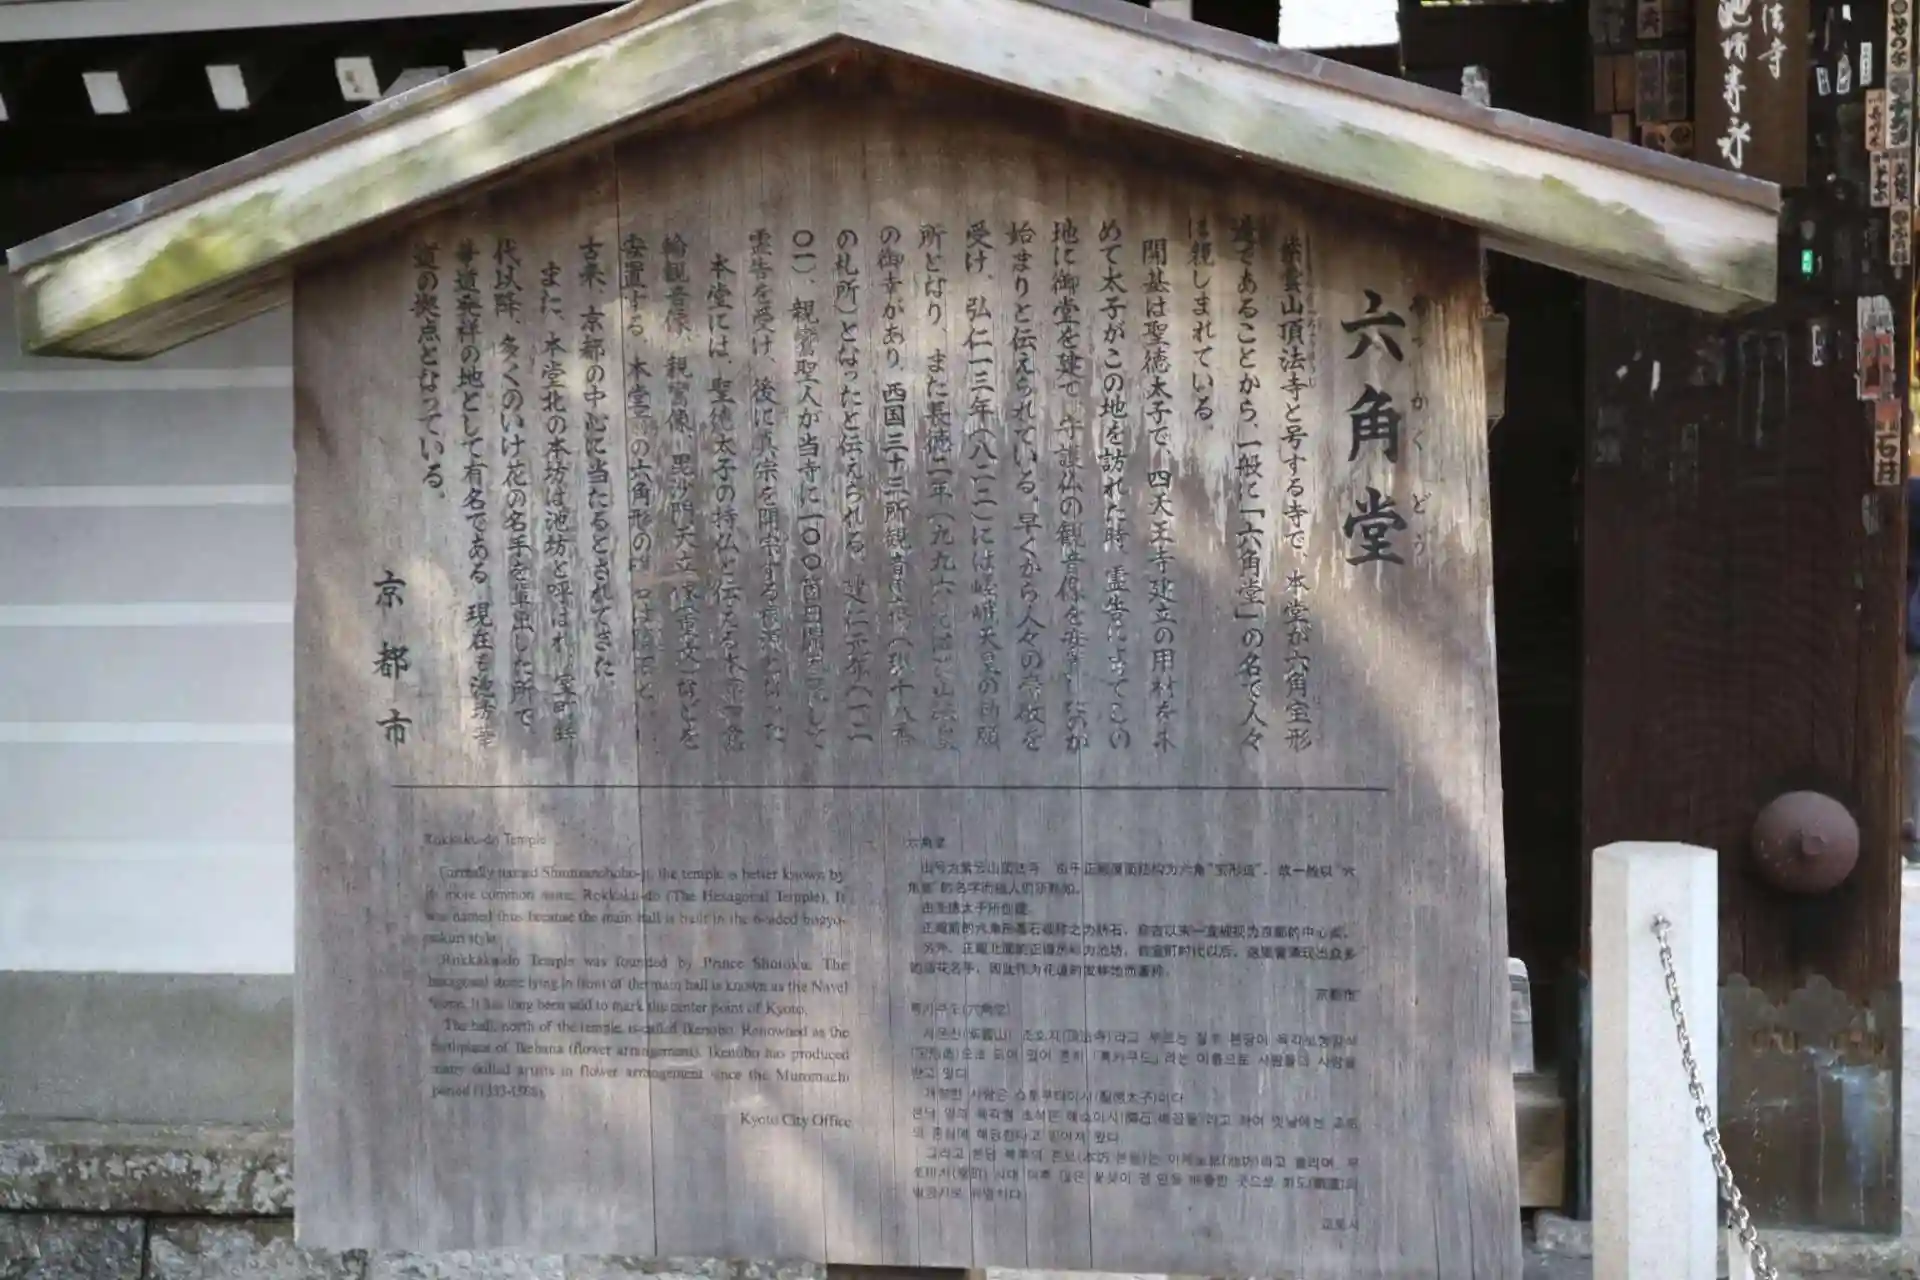 六角堂
ろっ かく どう
紫雲山頂法寺と号する寺で、本堂が六角宝形
造であることから、一般に「六角堂」の名で人々
に親しまれている。
開基は聖徳太子で、四天王寺建立の用材を求
めて太子がこの地を訪れた時、霊告によってこの
地に御堂を建て、守護仏の観音像を安置したのが
始まりと伝えられている。早くから人々の崇敬を
受け、弘仁一三年(八二二)には嵯峨天皇の勅願
所となり、また長徳二年(九九六)には花山法皇
の御幸があり、西国三十三所観音霊場(現十八番
の札所)となったと伝えられる。建仁元年(一二
〇一)、親鸞聖人が当寺に一〇〇箇日参籠して
霊告を受け、後に真宗を開宗する根源となった
本堂には、聖徳太子の持仏と伝える本尊如意
輪観音像、親鸞像、毘沙門天立像(重文)などを
安置する。本堂 の六角形の
古来、京都の中心に当たるとされてきた。
また、本堂北の本坊は池坊と呼ばれ、室町時
代以降、多くのいけ花の名手を輩出した所で、
華道発祥の地として有名である。現在も池坊華
道の拠点となっている。
京都市
Rokkaku-do Temple
Formally named Shiunzanchoho-ji, the temple is better known by
its more common name, Rokkaku-do (The Hexagonal Temple). It
was named thus because the main hall is built in the 6-sided hogyo-
zukuri style.
Rokkaku-do Temple was founded by Prince Shotoku. The
hexagonal stone lying in front of the main hall is known as the Navel
Stone. It has long been said to mark the center point of Kyoto.
The hall, north of the temple, is called Ikenobo. Renowned as the
birthplace of Ikebana (flower arrangement), Ikenobo has produced
many skilled artists in flower arrangement since the Muromachi
period (1333-1568).
Kyoto City Office
六角堂
山号为紫云山顶法寺 由于正殿屋面结构为六角“宝形造”，故一般以“六
角堂”的名字而被人们所熟知。
由圣德太子所创建。
正殿前的六角形基石被称之为脐石，自古以来一直被视为京都的中心点。
另外，正殿北面的正僧房称为池坊，自室町时代以后，这里曾涌现出众多
的插花名手，因此作为花道的发祥地而著称。
京都市
록카쿠도(六角堂)
시운산(紫雲山) 조호지(頂法寺)라고 부르는 절로 본당이 육각보형양식
(宝形造)으로 되어 있어 흔히 「록카쿠도」라는 이름으로 사람들의 사랑을
받고 있다.
개창한 사람은 쇼토쿠타이시(聖徳太子)이다.
본당 앞의 육각형 초석은 헤소이시(臍石 배꼽돌)라고 하여 옛날에는 교토
의 중심에 해당한다고 믿어져 왔다.
교토시
池坊専永
法寺
石柱